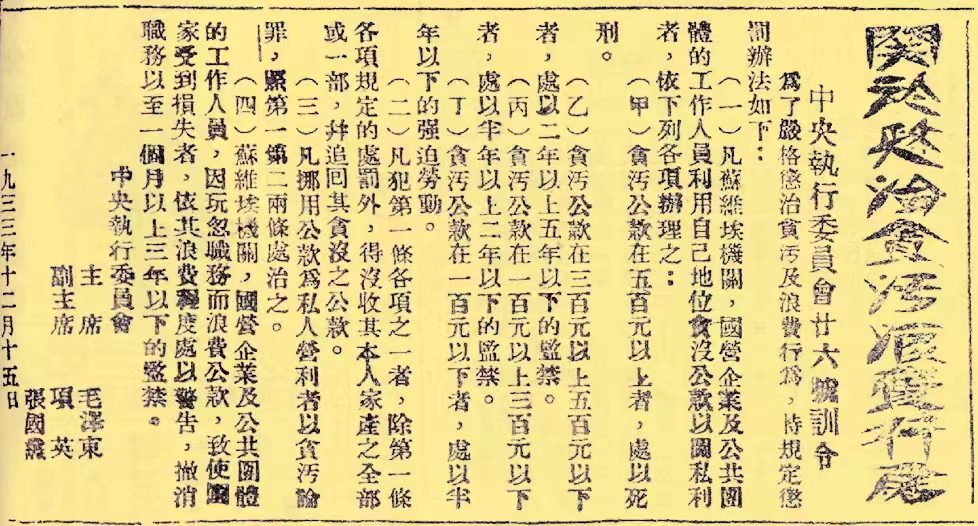 關於懲治貪污浪費行為
中央執行委員會廿六號訓令
爲了嚴格懲治貪污及浪費行爲，特規定懲
罰辦法如下：
（一）凡蘇維埃機關，國營企業及公共團
體的工作人員利用自己地位貪沒公款以圖私利
者，依下列各項辦理之：
（甲）貪污公款在五百元以上者，處以死
刑。
（乙）貪污公款在三百元以上五百元以下
者，處以二年以上五年以下的監禁。
（丙）貪污公款在一百元以上三百元以下
者，處以半年以上二年以下的監禁。
（丁）貪污公款在一百元以下者，處以半
年以下的强迫勞動。
（二）凡犯第一條各項之一者，除第一條
各項規定的處罰外，得沒收其本人家產之全部
或一部，幷追回其貪沒之公款。
（三）凡挪用公款爲私人營利者以貪污論
罪，照第一第二兩條處治之。
（四）蘇維埃機關，國營企業及公共團體
的工作人員，因玩忽職務而浪費公款，致使國
家受到損失者，依其浪費程度處以警告，撤消
職務以至一個月以上三年以下的監禁。
中央執行委員會
主　席　毛澤東
副主席　項　英
張國燾
一九三三年十二月十五日